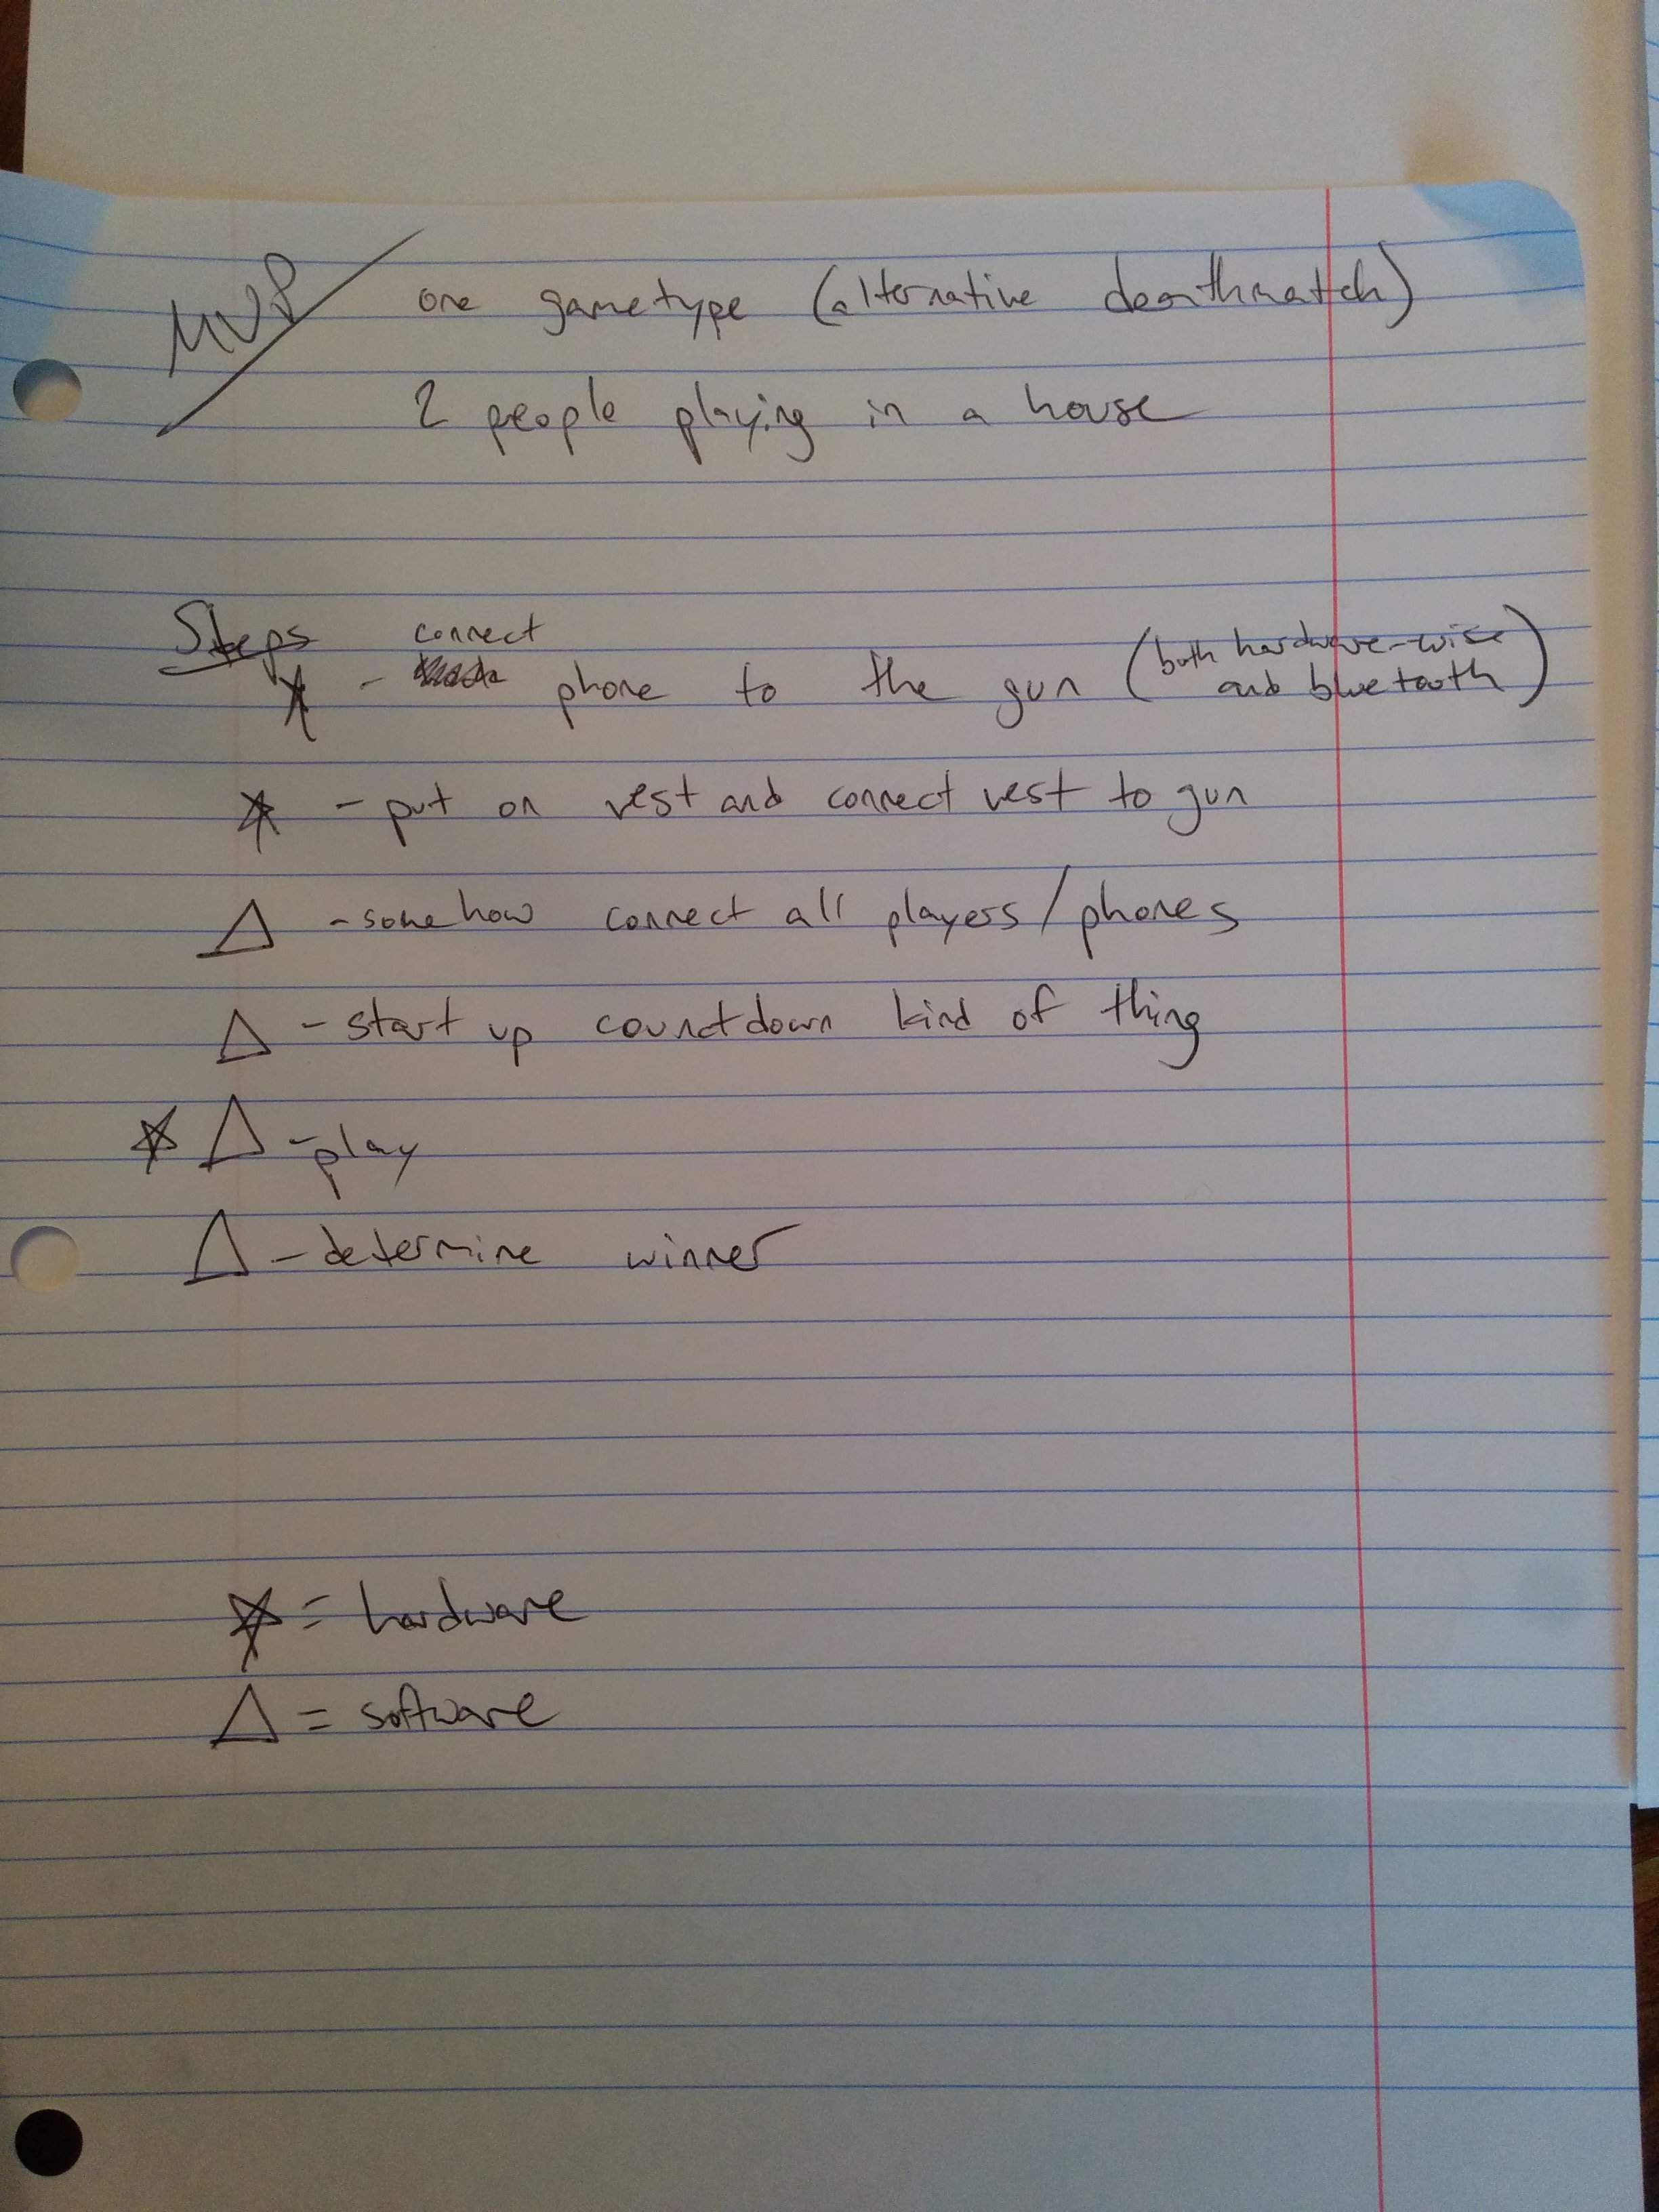 MVP one gametype (alternative deathmatch)
2 people playing in a house
Steps
☆ - connect phone to the gun (both hardware-wise and bluetooth)
☆ - put on vest and connect vest to gun
△ - somehow connect all players/phones
△ - start up countdown kind of thing
☆ △ - play
△ - determine winner
☆ = hardware
△ = software